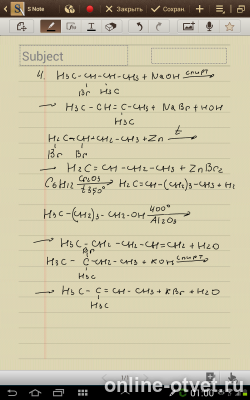 S Note
Закрыть
Сохран.
Subject
4. H₃C-CH-CH-CH₃ + NaOH спирт
Br H₃C
→ H₃C-CH=C-CH₃ + NaBr + HOH
H₃C
H₂C-CH-CH₂-CH₃ + Zn t
Br Br
→ H₂C=CH-CH₂-CH₃ + ZnBr₂
C₆H₁₂ Cr₂O₃ → H₂C=CH-(CH₂)₃-CH₃ + H₂
H₃C-(CH₂)₃-CH₂-OH 400° Al₂O₃
→ H₃C-CH₂-CH₂-CH=CH₂ + H₂O
Br
H₃C-C-CH₂-CH₃ + KOH спирт
H₃C
→ H₃C-C=CH-CH₃ + KBr + H₂O
H₃C
01:00
online-otvet.ru